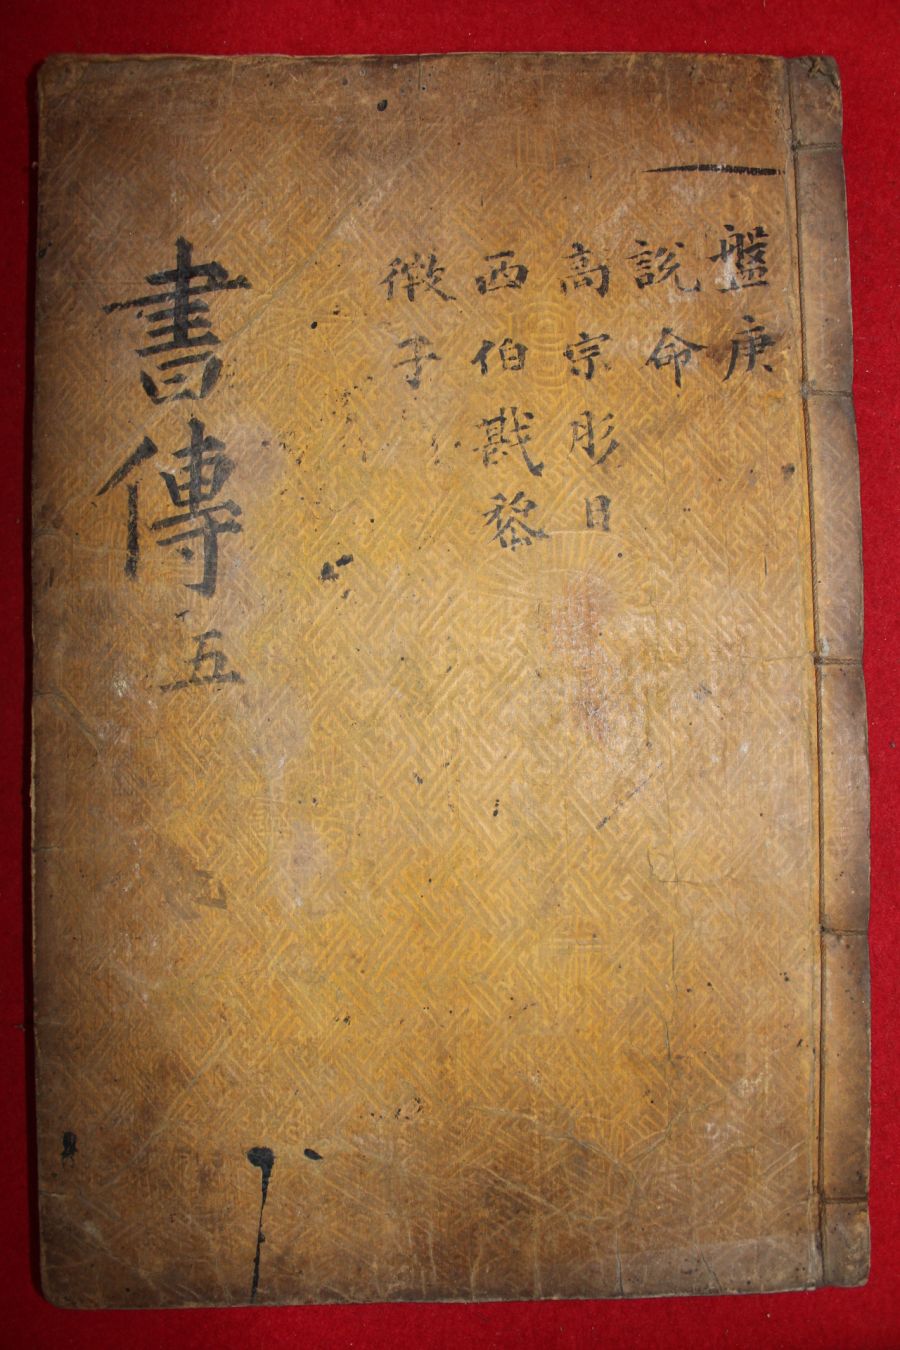 盤庚
說命
高宗肜日
西伯戡黎
微子
書傳 五